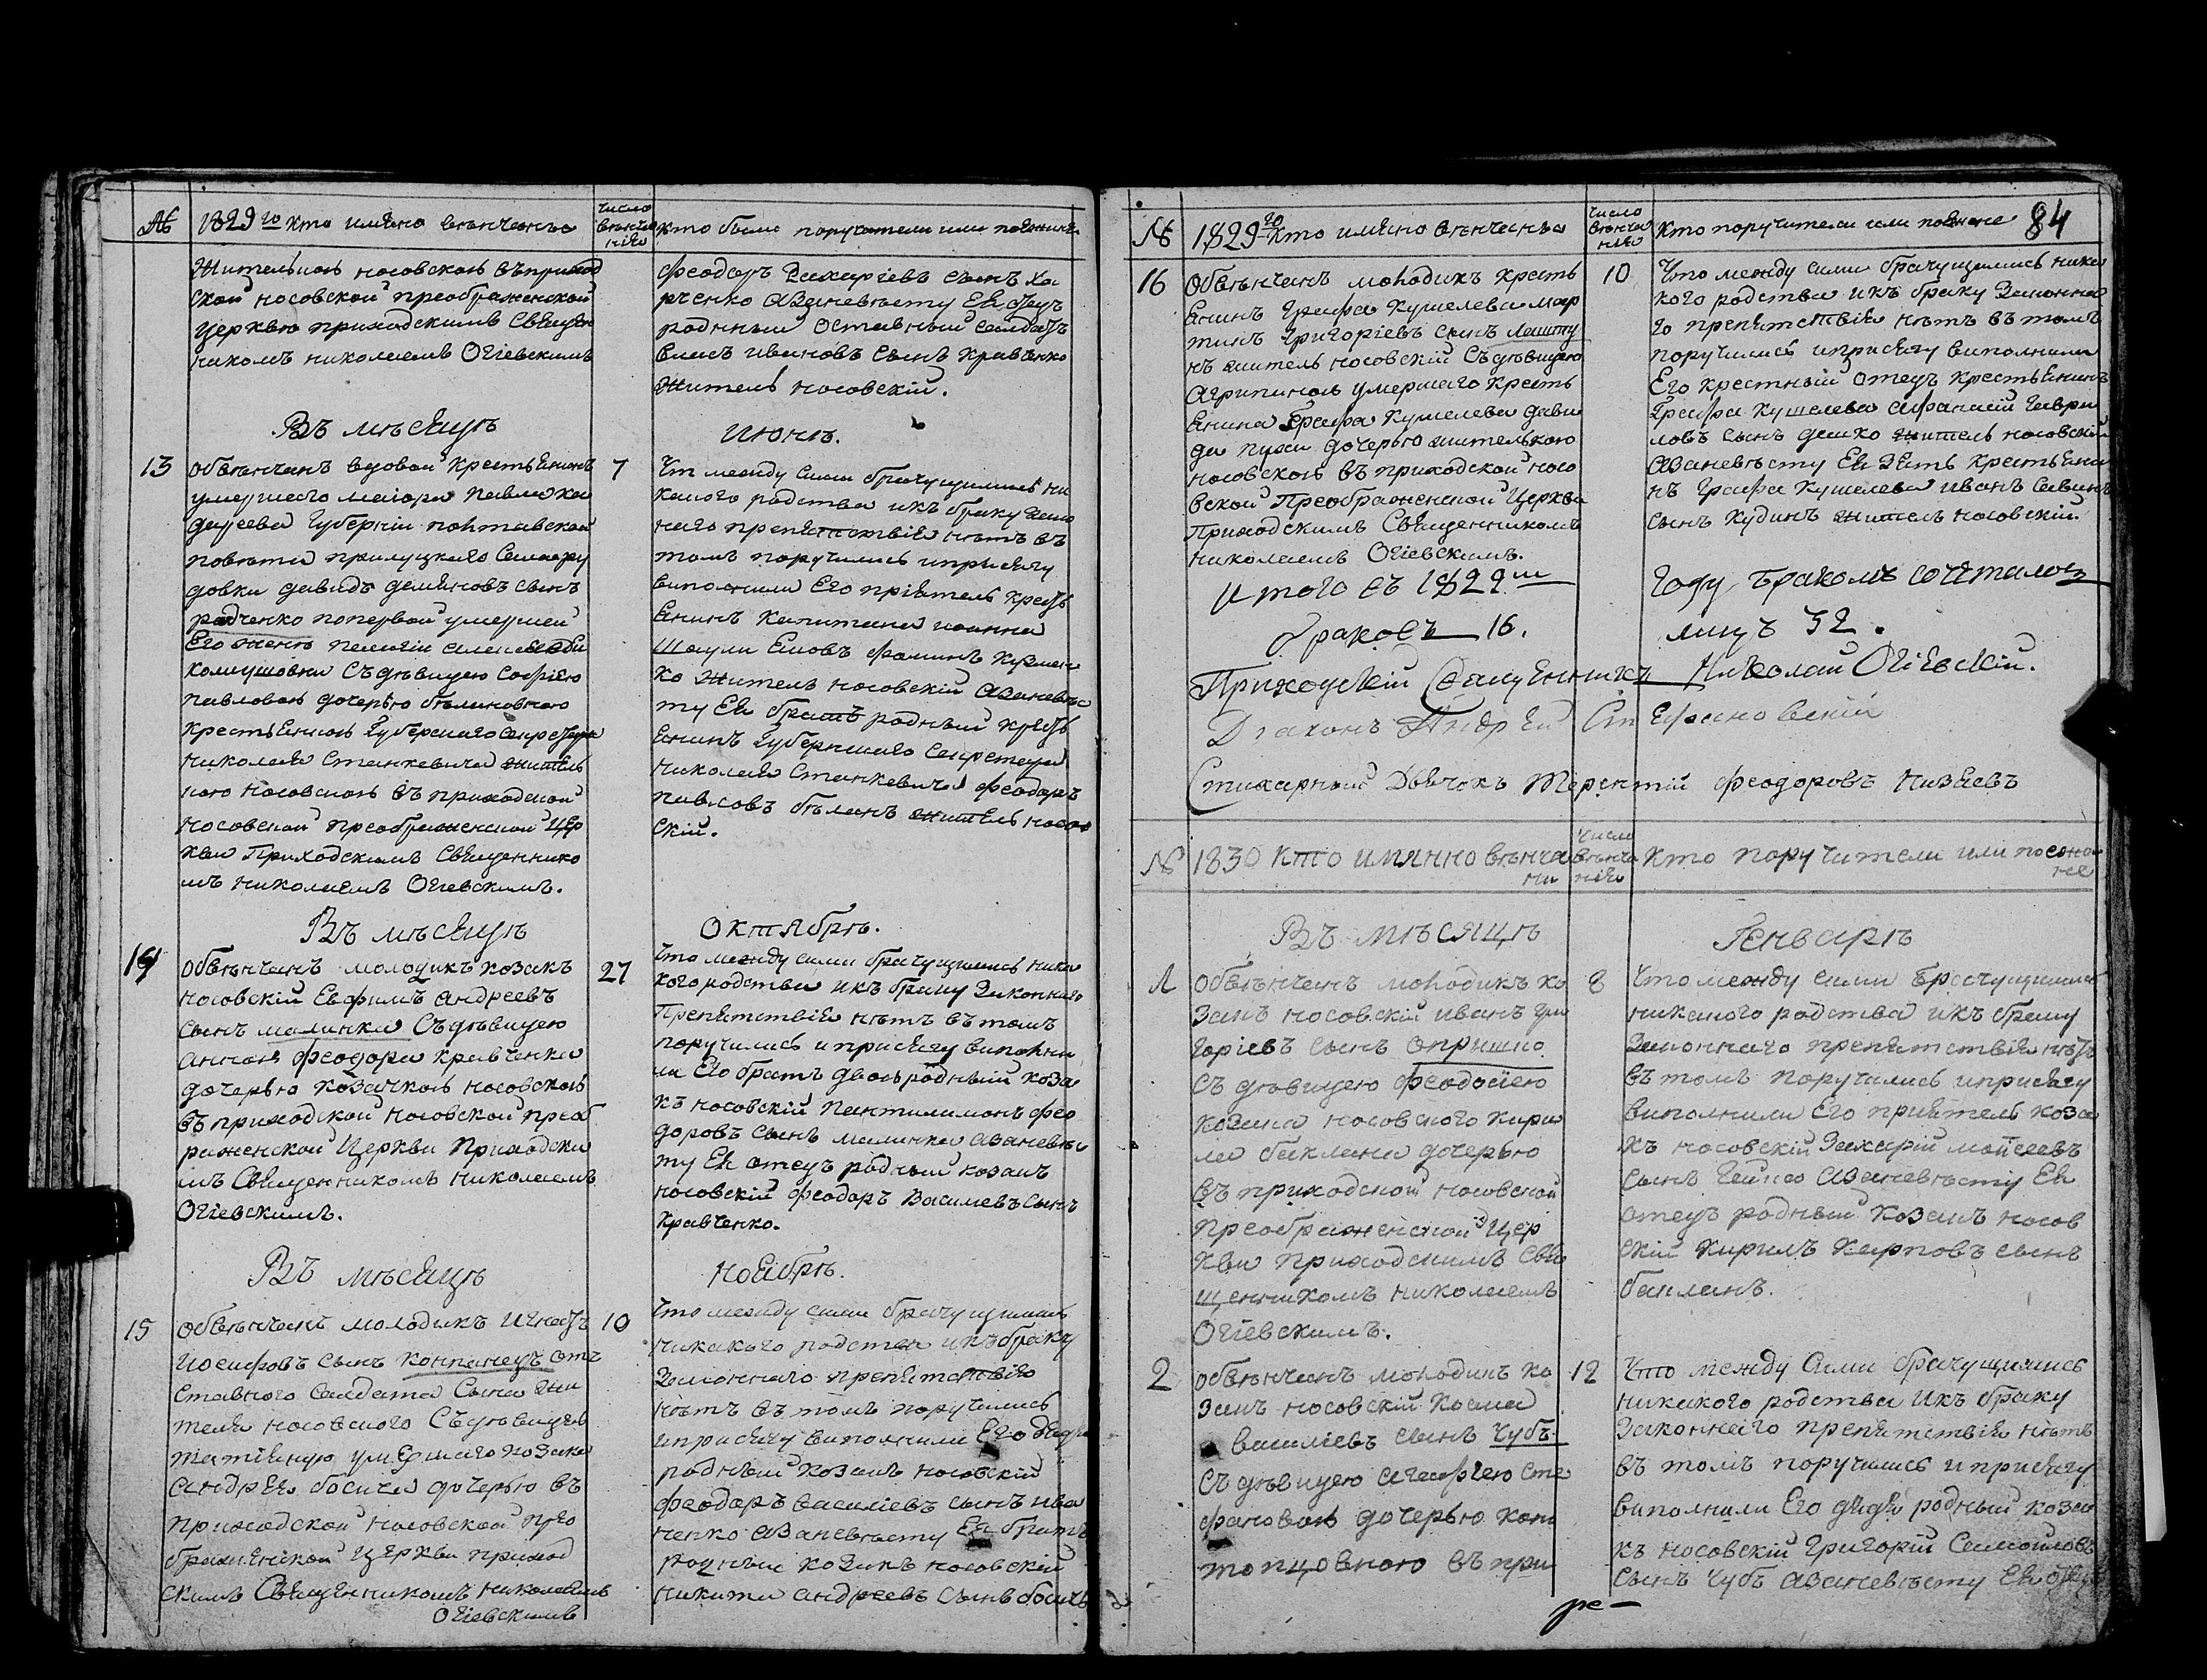 № 1829го кто имяно венчанъ
число венчания
кто были поручители или поезжане
Жителькою носовскою въ приход
ской носовской преображенской
церквѣ приходскимъ Священ
никомъ николаемъ Огіевскимъ
феодоръ Захаріевъ сынъ Ха
рченко а за невѣсту Ея
родный отставный салдатъ
ивановъ сынъ кравченко
житель носовскій.
Въ мѣсяцѣ
июнѣ.
13
обвѣнчанъ вдовой крестьянинъ
умершаго маіора павла ка
губерніи полтавской
повѣта прилуцкаго
довки давидъ демяновъ сынъ
радченко по первой умершей
Его женѣ пелагіи
съ дѣвицею софіею
павловою дочерью бѣлановною
крестьянкою Губерскаго секретаря
николая Станкевича житель
кою носовскою въ приходской
носовской преображенской цер
кви Приходскимъ Священнико
мъ николаемъ Огіевскимъ.
7
Что между сими брачущимись ни
какого родства и къ браку закон
наго препятствія нѣтъ въ
томъ поручились и присягу
виполнили Его пріятель крест
янинъ капитана иоанна
фоминъ
ко житель носовскій а за невѣс
ту Ея братъ родный крест
янинъ губернского секретаря
николая Станкевича феодоръ
павловъ бѣланъ житель носов
скій.
Въ мѣсяцѣ
Октябрѣ.
14
обвѣнчанъ молодикъ козакъ
носовскій Евфимъ андреевъ
сынъ малинка съ дѣвицею
анною феодора кравченка
дочерью козачкою носовскою
въ приходской носовской преоб
раженской церкви Приходски
мъ Священникомъ николаемъ
Огіевскимъ.
27
Что между сими брачущимись ника
кого родства и къ браку Законнаго
Препятствія нѣтъ въ томъ
поручились и присягу виполни
ли Его братъ двоюродный коза
къ носовскій пантилимонъ фео
доровъ сынъ малинка а за невѣс
ту Ея отецъ родный козакъ
носовскій феодоръ Василіевъ сынъ
кравченко.
Въ мѣсяцѣ
ноябрѣ.
15
обвѣнчанъ молодикъ игнатъ
иосифовъ сынъ компанецъ от
ставного салдата сынъ жи
тель носовского съ дѣвицею
татіяною умершаго козака
андрея босича дочерью въ
приходской носовской прео
браженской церкви приход
скимъ Священникомъ николаемъ
Огіевскимъ
10
Что между сими брачущимись
никакого родства и къ браку
Законнаго препятствія
нѣтъ въ томъ поручились
и присягу виполнили Его дядя
родный козакъ носовскій
феодоръ василіевъ сынъ ива
ненко а за невѣсту Ея братъ
родный козакъ носовскій
никита андреевъ сынъ босичъ
№ 1829го кто имяно венчанъ
число венча нія
кто поручители или поезжане
84
16
Обвѣнчанъ молодикъ кресть
янинъ Графа Кушелева мар
тинъ григоріевъ сынъ
нъ житель носовскій съ дѣвицею
агрипиною умершаго кресть
янина Графа Кушелева дави
да дочерью жителькою
носовскою въ приходской носо
вской Преображенской Церкви
Приходскимъ Священникомъ
николаемъ Огіевскимъ.
10
Что между сими брачущимись ника
кого родства и къ браку Законна
го препятствія нѣтъ въ томъ
поручились и присягу виполнили
Его крестный отецъ крестьянинъ
Графа Кушелева афанасій гаври
ловъ сынъ дешко житель носовскій
а за невѣсту Ея Зять крестьяни
нъ Графа Кушелева иванъ савинъ
сынъ кудинъ житель носовскій.
Итого въ 1829м
Году бракомъ сочеталось
браковъ 16.
лицъ 32.
Приходскій Священникъ Николай Огіевскій.
Діаконъ Андрей Стефановскій
Стихарный Дьячокъ Терентій феодоровъ Низяевъ
№ 1830 кто имянно венча ни
число венча нія
кто поручители или поезжа не
Въ мѣсяцѣ
Генварѣ
1
обвѣнчанъ молодикъ ко
закъ носовскій иванъ гри
горіевъ сынъ опришко
съ дѣвицею феодосіею
козака носовского кири
ла баклана дочерью
въ приходской носовской
преображенской цер
кви приходскимъ Свя
щенникомъ николаемъ
Огіевскимъ.
8
Что между сими брачущимись
никакого родства и къ браку
Законнаго препятствія нѣтъ
въ томъ поручились и присягу
виполнили Его пріятель коза
къ носовскій Захарій мойсеевъ
сынъ а за невѣсту Ея
отецъ родный козакъ носов
скій кирилъ карповъ сынъ
бакланъ.
2
обвѣнчанъ молодикъ ко
закъ носовскій косма
василіевъ сынъ Чубъ
съ дѣвицею агафіею сте
фановою дочерью кон
топцовною въ при
12
Что между сими брачущимись
никакого родства и къ браку
Законнаго препятствія нѣтъ
въ томъ поручились и присягу
виполнили Его дядя родный коза
къ носовскій григорій Самойловъ
сынъ Чубъ а за невѣсту Ея